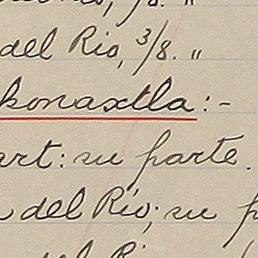 del Rio, 3/8. "
konaxtla:-
art: su parte.
del Río; su p